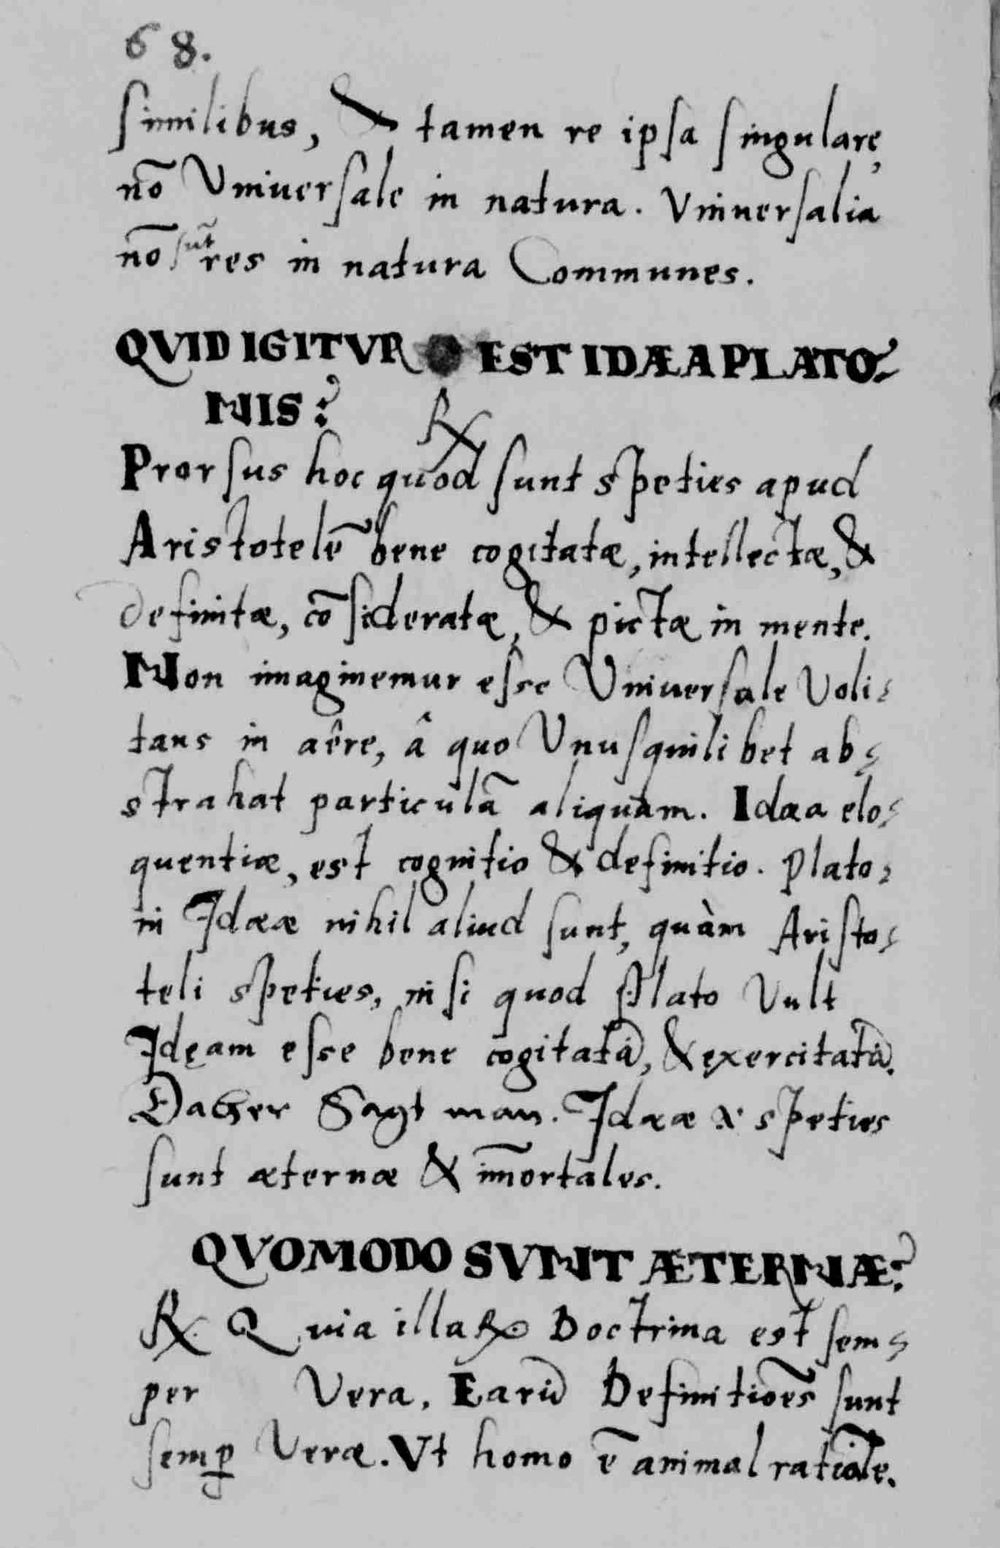 68.
similibus, & tamen re ipsa singulare,
nō Vniuersale in natura. Vniuersalia
nō sūt res in natura Communes.
QVID IGITVR EST IDÆA PLATO⸗
NIS? ℞
Prorsus hoc quod sunt speties apud
Aristotelē bene cogitatæ, intellectæ, &
definitæ, cōsideratæ, & pictæ in mente.
Non imaginemur esse Vniuersale Voli⸗
tans in aêre, â quo Vnusquilibet ab⸗
strahat particulā aliquam. Idæa elo⸗
quentiæ, est cognitio & definitio. Plato⸗
ni Idææ nihil aliud sunt, quàm Aristo⸗
teli speties, nisi quod Plato Vult
Idęam esse bene cogitatā, & exercitatā.
Daher Sagt man. Idææ & speties
sunt æternæ & im̄ortales.
QVOMODO SVNT ÆTERNÆ?
℞. Quia illaꝝ Doctrina est sem⸗
per Vera. Earū Definitiōes sunt
semꝑ Veræ. Vt homo ē animal ratiōale.